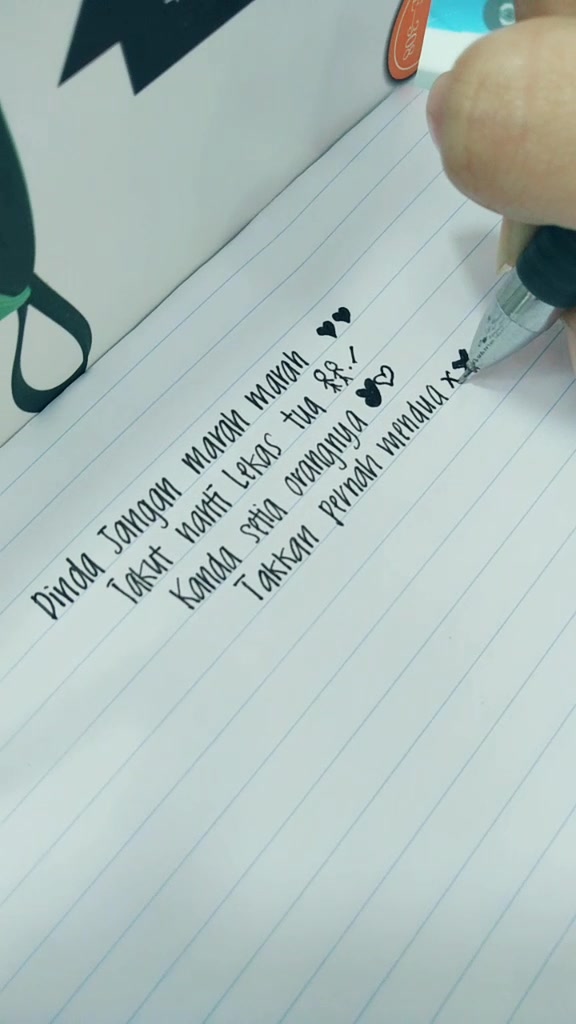 Dinda Jangan marah marah
Takut nanti Lekas tua
Kanda setia orangnya
Takkan pernah mendua xx